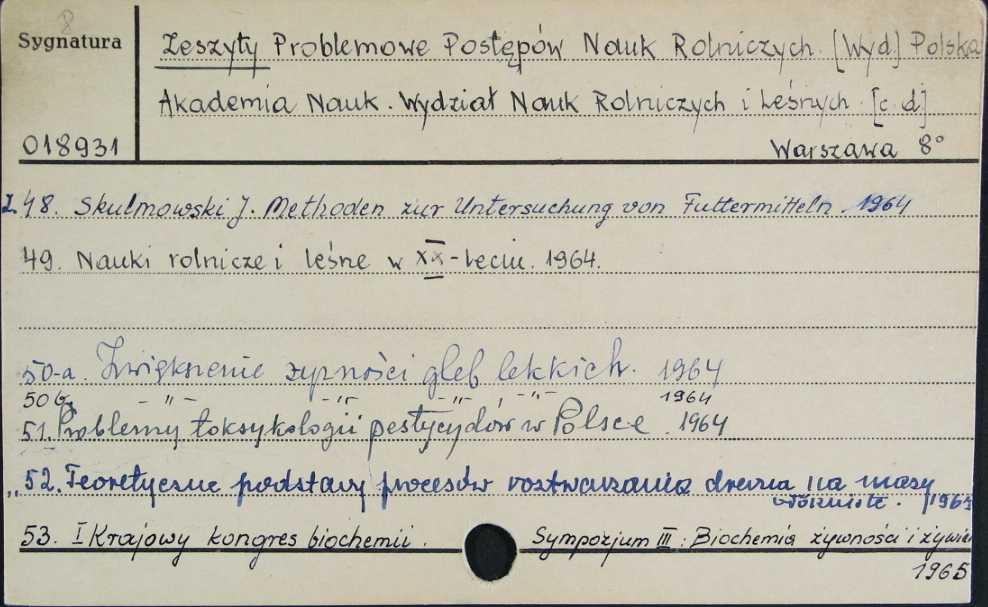 8
Sygnatura
Zeszyty Problemowe Postępów Nauk Rolniczych. [Wyd.] Polska
Akademia Nauk. Wydział Nauk Rolniczych i Leśnych. [c.d]
018931
Warszawa 8°
Z 48. Skulmowski J. Methoden zur Untersuchung von Futtermitteln. 1964
49. Nauki rolnicze i leśne w XX-leciu. 1964.
50-a. Zwiększenie żyzności gleb lekkich. 1964
50 b. -"- -"- -"- , -"- 1964
51. Problemy toksykologii pestycydów w Polsce. 1964
„52. Teoretyczne podstawy procesów roztwarzania drewna na masy
włókniste. 1965
53. I Krajowy kongres biochemii. Sympozjum III: Biochemia żywności i żywie
1965